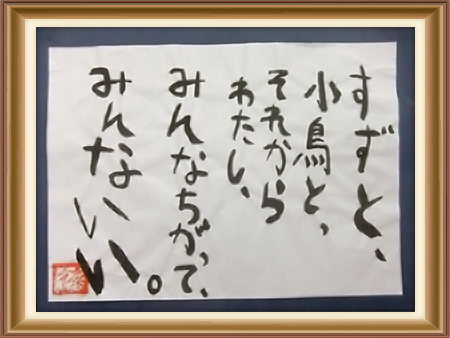 すずと、
小鳥と、
それから
わたし、
みんなちがって、
みんないい。